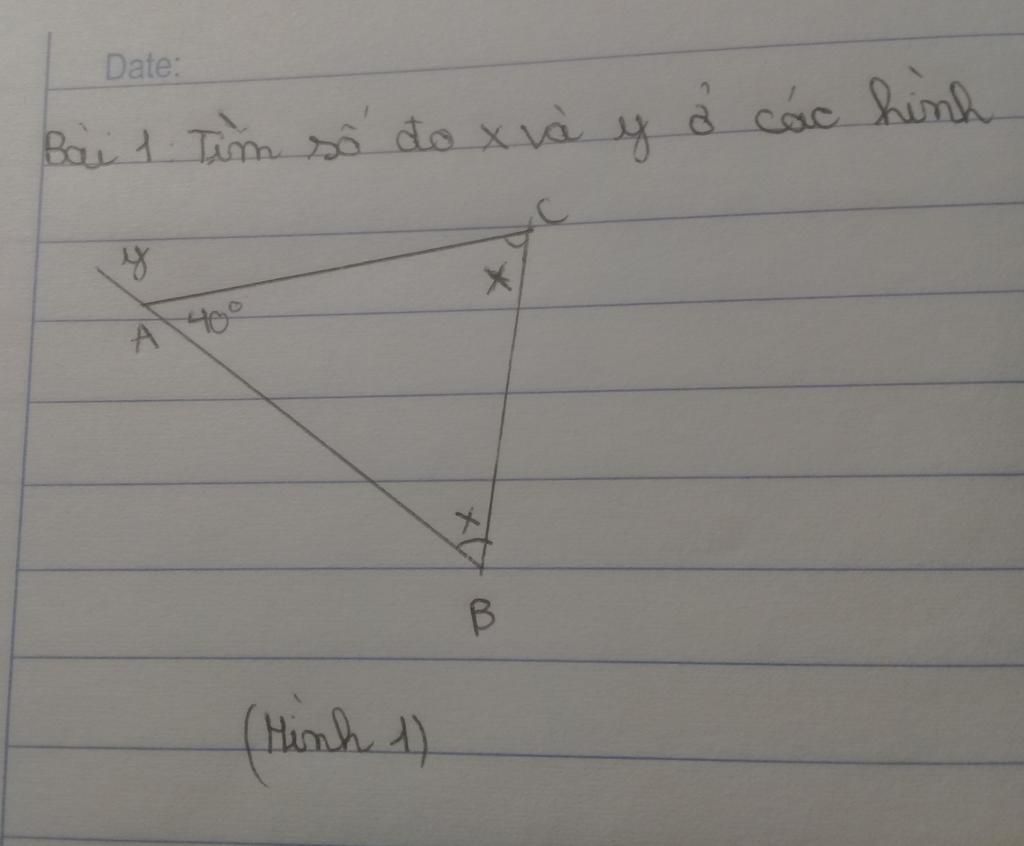 Date:
Bài 1. Tìm số đo x và y ở các hình
C
y
x
40°
A
x
B
(Hình 1)